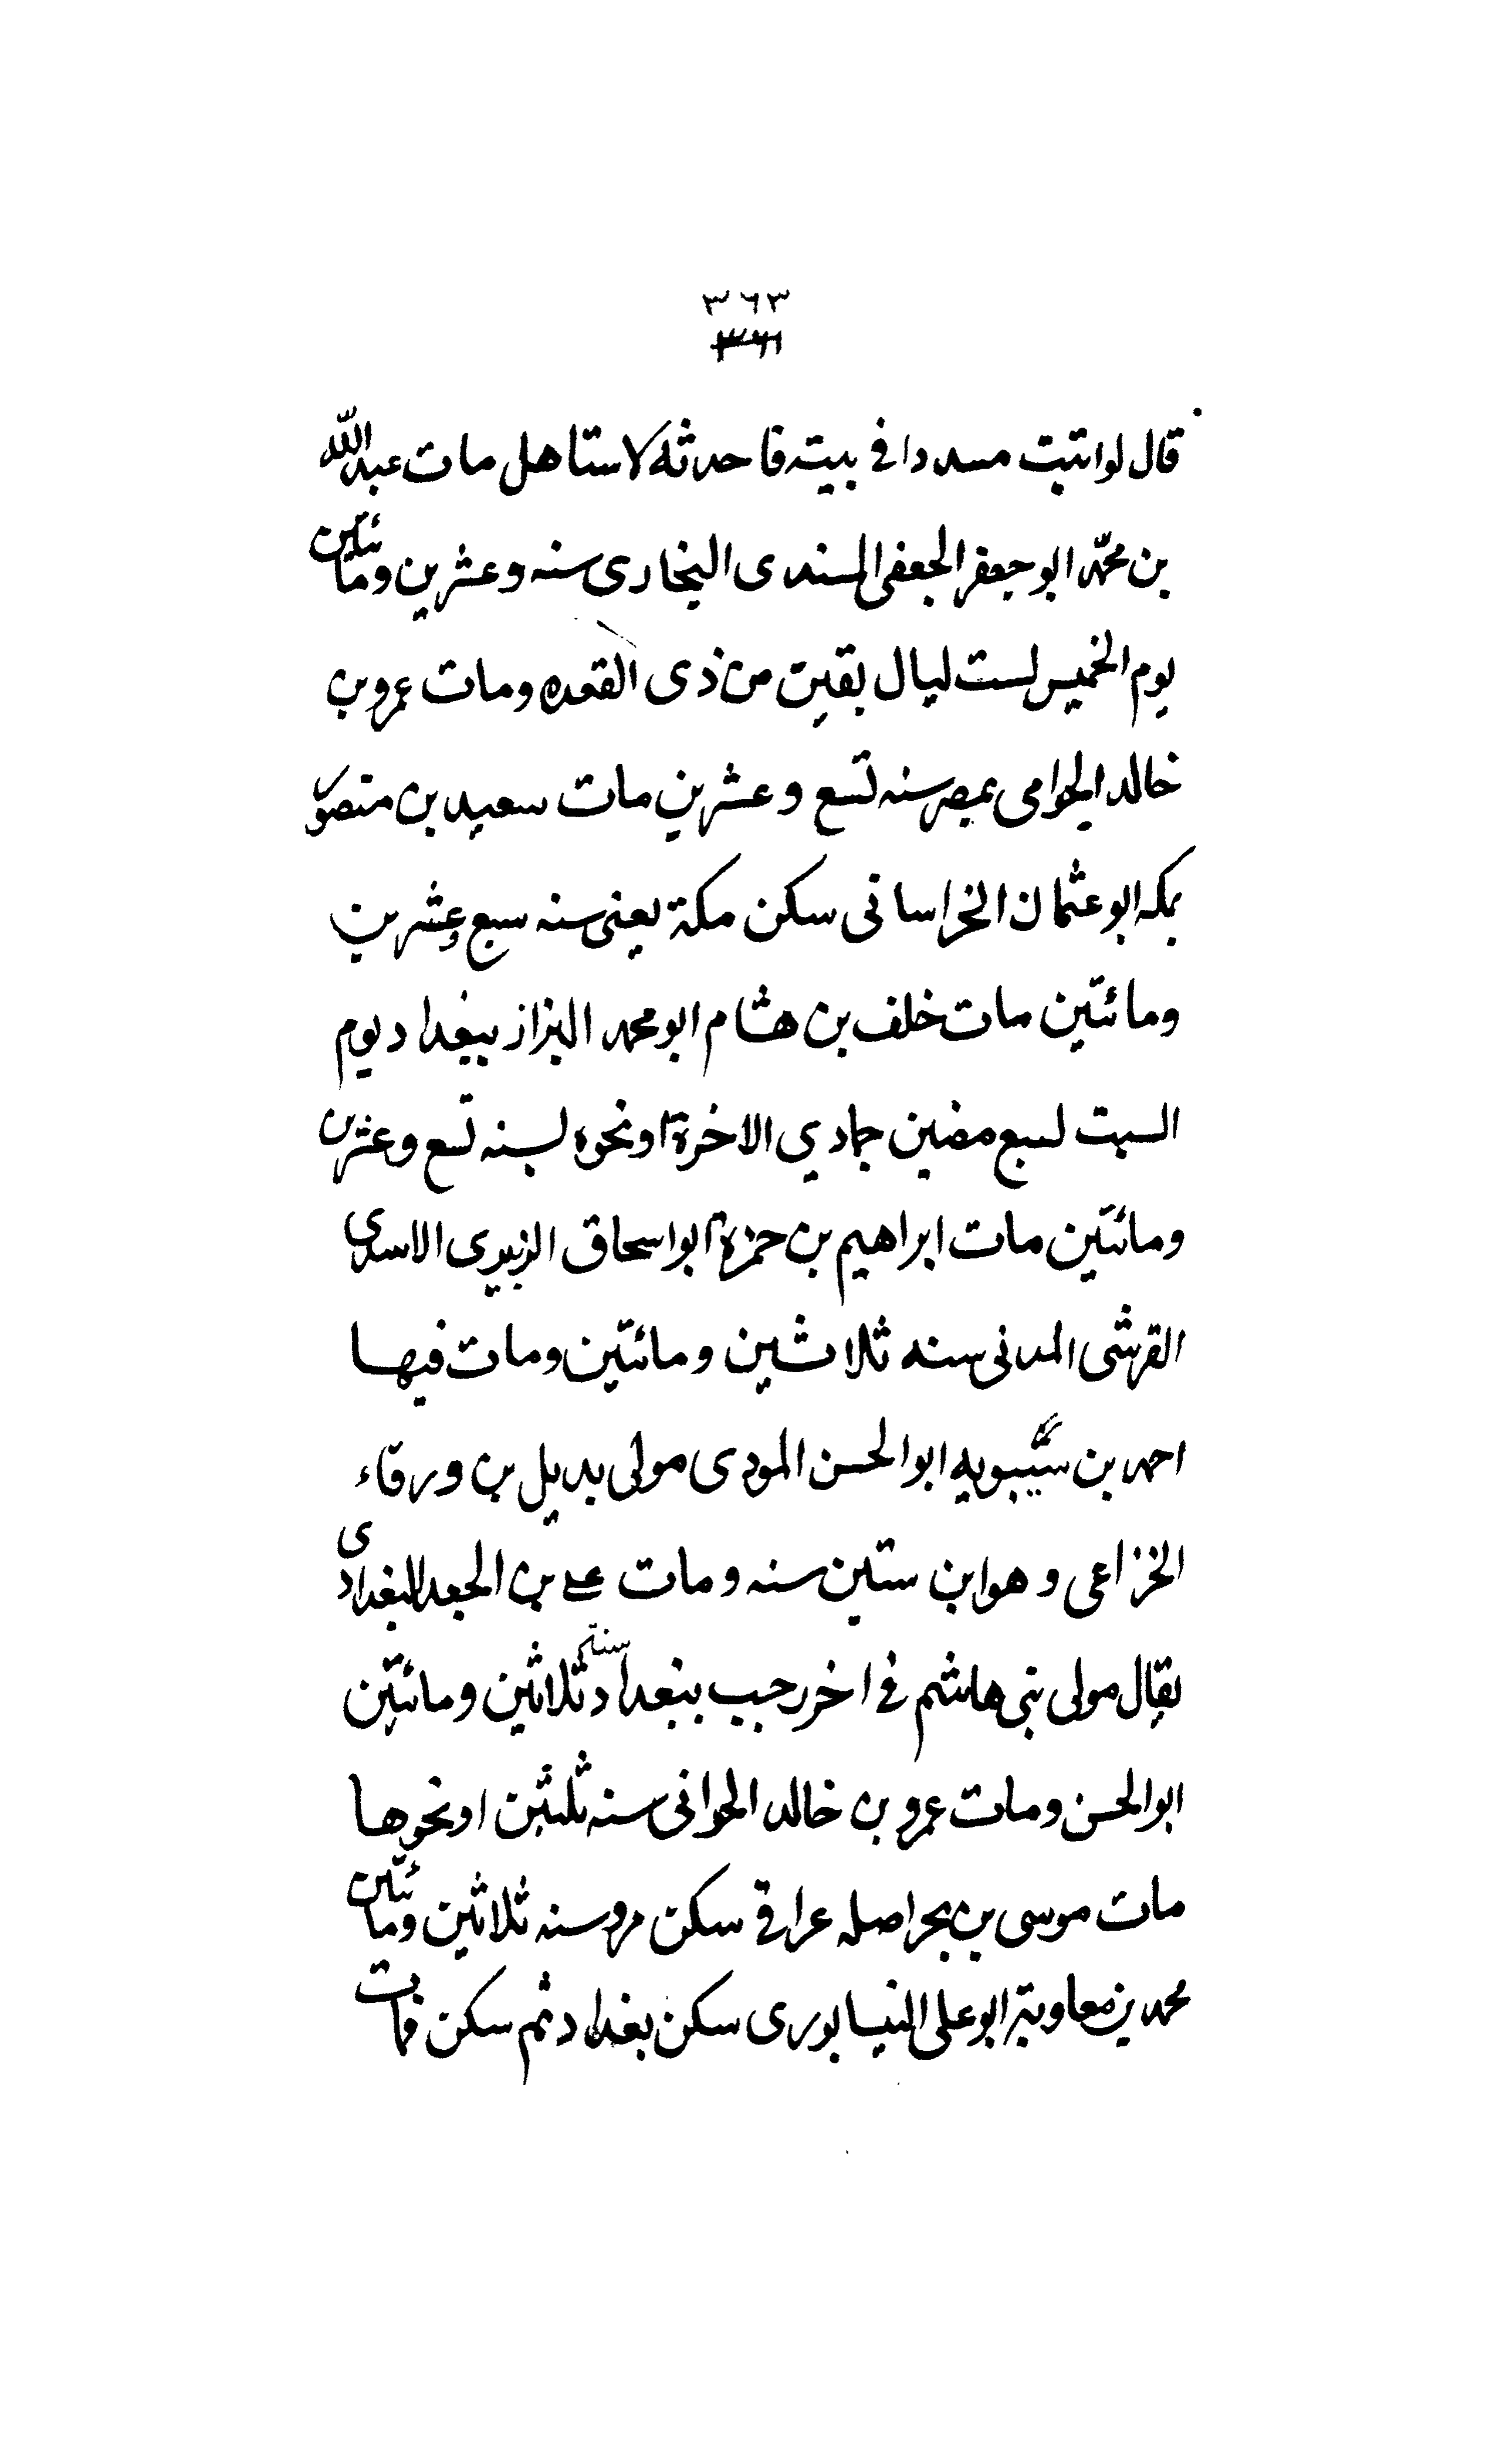 ٣٦٣
٣٦١
قال لو اتيت مسددا في بيته فاحدثه لاستاهل مات عبد الله
بن محمد ابو جعفر الجعفي المسندى البخارى سنه وعشرين ومائتين
يوم الخميس لست ليال بقين من ذى القعده ومات عمرو بن
خالد الجوامى بمصر سنه تسع وعشرين مات سعيد بن منصور
بمكه ابو عثمان الخراسانى سكن مكة يعنى سنه سبع وعشرين
ومائتين مات خلف بن هشام ابو محمد البزاز ببغداد يوم
السبت لسبع مضين جمادي الاخرة او نحوه لسنه تسع وعشرين
ومائتين مات ابراهيم بن حمزة ابو اسحاق الزبيرى الاسدى
القرشى المدنى سنه ثلاثين ومائتين ومات فيها
احمد بن سيبويه ابو الحسن المودى مولى بديل بن ورقاء
الخزاعى وهو ابن ستين سنه ومات على بن الجعد البغدادى
يقال مولى بنى هاشم في اخر رجب ببغداد سنة ثلاثين ومائتين
ابو الحسن ومات عمرو بن خالد الحوانى سنه ثلثين او نحوها
مات موسى بن بحر اصله عراقي سكن مرو سنه ثلاثين ومائتين
محمد بن معاوية ابو على النيسابورى سكن بغداد ثم سكن فمات